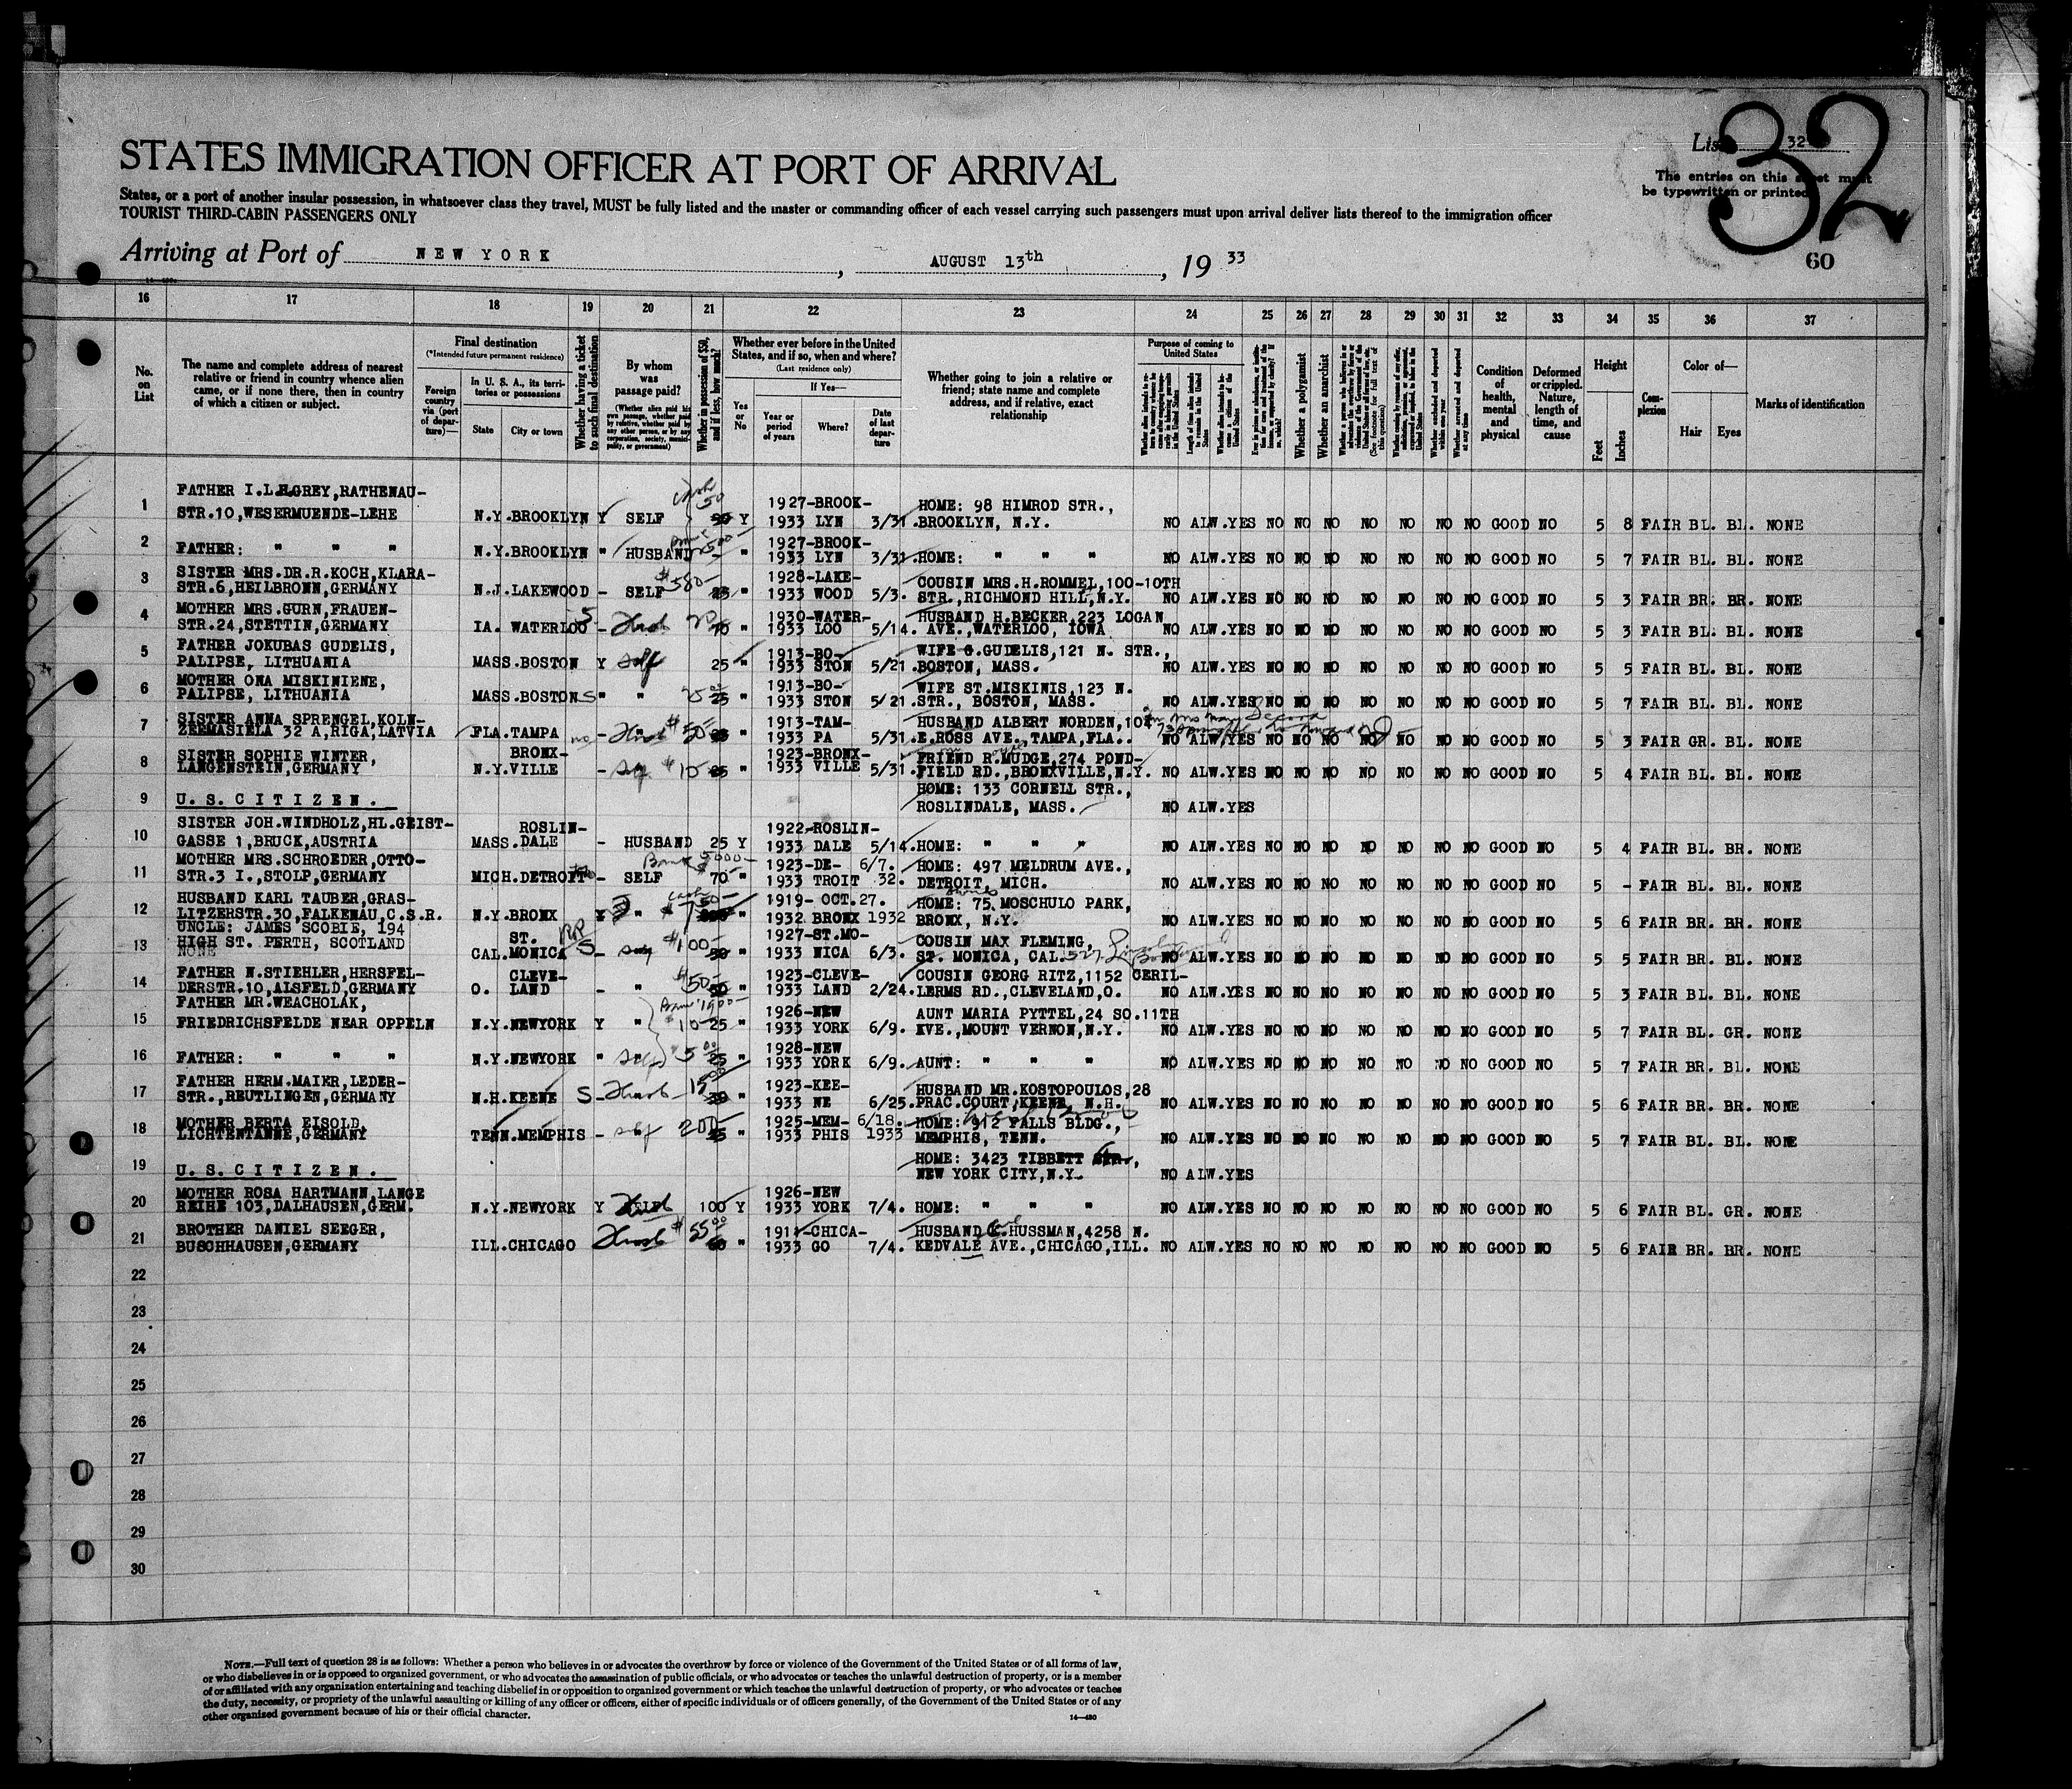 List 32
32
The entries on this sheet must
be typewritten or printed
STATES IMMIGRATION OFFICER AT PORT OF ARRIVAL
States, or a port of another insular possession, in whatsoever class they travel, MUST be fully listed and the master or commanding officer of each vessel carrying such passengers must upon arrival deliver lists thereof to the immigration officer
TOURIST THIRD-CABIN PASSENGERS ONLY
Arriving at Port of NEW YORK, AUGUST 13th, 19 33
60
16 17 18 19 20 21 22 23 24 25 26 27 28 29 30 31 32 33 34 35 36 37
No. on List
The name and complete address of nearest relative or friend in country whence alien came, or if none there, then in country of which a citizen or subject.
Final destination
(*Intended future permanent residence)
Foreign country via (port of departure)—
In U. S. A., its territories or possessions
State
City or town
Whether having a ticket to such final destination
By whom was passage paid?
(Whether alien paid his own passage, whether paid by relative, whether paid by any other person, or by any corporation, society, municipality, or government)
Whether in possession of $50, and if less, how much?
Whether ever before in the United States, and if so, when and where?
(Last residence only)
Yes or No
If Yes—
Year or period of years
Where?
Date of last departure
Whether going to join a relative or friend; state name and complete address, and if relative, exact relationship
Purpose of coming to United States
Length of time alien intends to remain in the United States
Whether alien intends to become a citizen of the United States
Whether a polygamist
Whether an anarchist
Whether arrested and deported at any time
Condition of health, mental and physical
Deformed or crippled. Nature, length of time, and cause
Height
Feet
Inches
Complexion
Color of—
Hair
Eyes
Marks of identification
1 FATHER I.L.H.GREY,RATHENAU- 1927-BROOK- HOME: 98 HIMROD STR.,
STR.10,WESERMUENDE-LEHE N.Y.BROOKLYN Y SELF Cash 50 Y 1933 LYN 3/31. BROOKLYN, N.Y. NO ALW.YES NO NO NO NO NO NO NO GOOD NO 5 8 FAIR BL. BL. NONE
2 1927-BROOK-
FATHER: " " " N.Y.BROOKLYN " HUSBAND " 1933 LYN 3/31. HOME: " " " NO ALW.YES NO NO NO NO NO NO NO GOOD NO 5 7 FAIR BL. BL. NONE
3 SISTER MRS.DR.R.KOCH,KLARA- 1928-LAKE- COUSIN MRS.H.ROMMEL,100-10TH
STR.6,HEILBRONN,GERMANY N.J.LAKEWOOD - SELF $580- 25 " 1933 WOOD 5/3. STR.,RICHMOND HILL,N.Y. NO ALW.YES NO NO NO NO NO NO NO GOOD NO 5 3 FAIR BR. BR. NONE
4 MOTHER MRS.GURN,FRAUEN- 1930-WATER- HUSBAND H.BECKER,223 LOGAN
STR.24,STETTIN,GERMANY IA. WATERLOO S - Husb " 1933 LOO 5/14. AVE.,WATERLOO, IOWA NO ALW.YES NO NO NO NO NO NO NO GOOD NO 5 3 FAIR BL. BL. NONE
5 FATHER JOKUBAS GUDELIS, 1913-BO- WIFE G.GUDELIS,121 N. STR.,
PALIPSE, LITHUANIA MASS.BOSTON Y Self 25 " 1933 STON 5/21. BOSTON, MASS. NO ALW.YES NO NO NO NO NO NO NO GOOD NO 5 5 FAIR BL. BL. NONE
6 MOTHER ONA MISKINIENE, 1913-BO- WIFE ST.MISKINIS,123 N.
PALIPSE, LITHUANIA MASS.BOSTON S " " 25 " 1933 STON 5/21. STR., BOSTON, MASS. NO ALW.YES NO NO NO NO NO NO NO GOOD NO 5 7 FAIR BL. BL. NONE
7 SISTER ANNA SPRENGEL,KOLN- 1913-TAM- HUSBAND ALBERT NORDEN,104
ZEEMASIELA 32 A,RIGA,LATVIA FLA.TAMPA no - Husb $50- " 1933 PA 5/31. E.ROSS AVE.,TAMPA,FLA.. NO ALW.YES NO NO NO NO NO NO NO GOOD NO 5 3 FAIR GR. BL. NONE
8 SISTER SOPHIE WINTER, BRONX- 1923-BRONX- FRIEND R.MUDGE,274 POND-
LANGENSTEIN,GERMANY N.Y.VILLE - $10- 25 " 1933 VILLE 5/31. FIELD RD.,BRONXVILLE,N.Y. NO ALW.YES NO NO NO NO NO NO NO GOOD NO 5 4 FAIR BL. BL. NONE
9 HOME: 133 CORNELL STR.,
U.S.CITIZEN. ROSLINDALE, MASS. NO ALW.YES
10 SISTER JOH.WINDHOLZ,HL.GEIST- ROSLIN- 1922-ROSLIN-
GASSE 1,BRUCK,AUSTRIA MASS.DALE - HUSBAND 25 Y 1933 DALE 5/14. HOME: " " " NO ALW.YES NO NO NO NO NO NO NO GOOD NO 5 4 FAIR BL. BR. NONE
11 MOTHER MRS.SCHROEDER,OTTO- Bank 5000- 1923-DE- 6/7. HOME: 497 MELDRUM AVE.,
STR.3 I.,STOLP,GERMANY MICH.DETROIT - SELF 70- " 1933 TROIT 32. DETROIT, MICH. NO ALW.YES NO NO NO NO NO NO NO GOOD NO 5 - FAIR BL. BL. NONE
12 HUSBAND KARL TAUBER,GRAS- 1919- OCT.27. HOME: 75 MOSCHULO PARK,
LITZERSTR.30,FALKENAU,C.S.R. N.Y.BRONX Y " " 1932 BRONX 1932 BRONX, N.Y. NO ALW.YES NO NO NO NO NO NO NO GOOD NO 5 6 FAIR BR. BR. NONE
13 UNCLE: JAMES SCOBIE, 194 ST. 1927-ST.MO- COUSIN MAX FLEMING,
HIGH ST. PERTH, SCOTLAND CAL.MONICA S - $100- " 1933 NICA 6/3. ST. MONICA, CAL. NO ALW.YES NO NO NO NO NO NO NO GOOD NO 5 5 FAIR BR. BL. NONE
NONE
14 FATHER N.STIEHLER,HERSFEL- CLEVE- 1923-CLEVE- COUSIN GEORG RITZ,1152 CERIL-
DERSTR.10,ALSFELD,GERMANY O. LAND - " $50- " 1933 LAND 2/24. LERMS RD.,CLEVELAND,O. NO ALW.YES NO NO NO NO NO NO NO GOOD NO 5 3 FAIR BL. BL. NONE
15 FATHER MR.WEACHOLAK, 1926-NEW AUNT MARIA PYTTEL,24 SO.11TH
FRIEDRICHSFELDE NEAR OPPELN N.Y.NEWYORK Y " 10- 25 " 1933 YORK 6/9. EVE.,MOUNT VERNON,N.Y. NO ALW.YES NO NO NO NO NO NO NO GOOD NO 5 7 FAIR BL. GR. NONE
16 1928-NEW
FATHER: " " " N.Y.NEWYORK " 5 25 " 1933 YORK 6/9. AUNT: " " " NO ALW.YES NO NO NO NO NO NO NO GOOD NO 5 7 FAIR BR. BL. NONE
17 FATHER HERM.MAIER,LEDER- 1923-KEE- HUSBAND MR.KOSTOPOULOS,28
STR.,REUTLINGEN,GERMANY N.H.KEENE S - Husb 15 " 1933 NE 6/25. PRAC.COURT,KEENE, N.H. NO ALW.YES NO NO NO NO NO NO NO GOOD NO 5 6 FAIR BR. BR. NONE
18 MOTHER BERTA EISOLD, 1925-MEM- 6/18. HOME: 912 FALLS BLDG.,
LICHTENTANNE,GERMANY TENN.MEMPHIS - self 200- " 1933 PHIS 1933 MEMPHIS, TENN. NO ALW.YES NO NO NO NO NO NO NO GOOD NO 5 7 FAIR BL. BL. NONE
19 HOME: 3423 TIBBETT STR.,
U.S.CITIZEN. NEW YORK CITY,N.Y. NO ALW.YES
20 MOTHER ROSA HARTMANN,LANGE 1926-NEW
REIHE 103,DALHAUSEN,GERM. N.Y.NEWYORK Y Husb 100 Y 1933 YORK 7/4. HOME: " " " NO ALW.YES NO NO NO NO NO NO NO GOOD NO 5 6 FAIR BL. GR. NONE
21 BROTHER DANIEL SEEGER, 1911-CHICA- HUSBAND C.HUSSMAN,4258 N.
BUSCHHAUSEN,GERMANY ILL.CHICAGO Husb $55 60 " 1933 GO 7/4. KEDVALE AVE.,CHICAGO,ILL. NO ALW.YES NO NO NO NO NO NO NO GOOD NO 5 6 FAIR BR. BR. NONE
22
23
24
25
26
27
28
29
30
NOTE.—Full text of question 28 is as follows: Whether a person who believes in or advocates the overthrow by force or violence of the Government of the United States or of all forms of law,
or who disbelieves in or is opposed to organized government, or who advocates the assassination of public officials, or who advocates or teaches the unlawful destruction of property, or is a member
of or affiliated with any organization entertaining and teaching disbelief in or opposition to organized government or which teaches the unlawful destruction of property, or who advocates or teaches
the duty, necessity, or propriety of the unlawful assaulting or killing of any officer or officers, either of specific individuals or of officers generally, of the Government of the United States or of any
other organized government because of his or their official character.
14—480